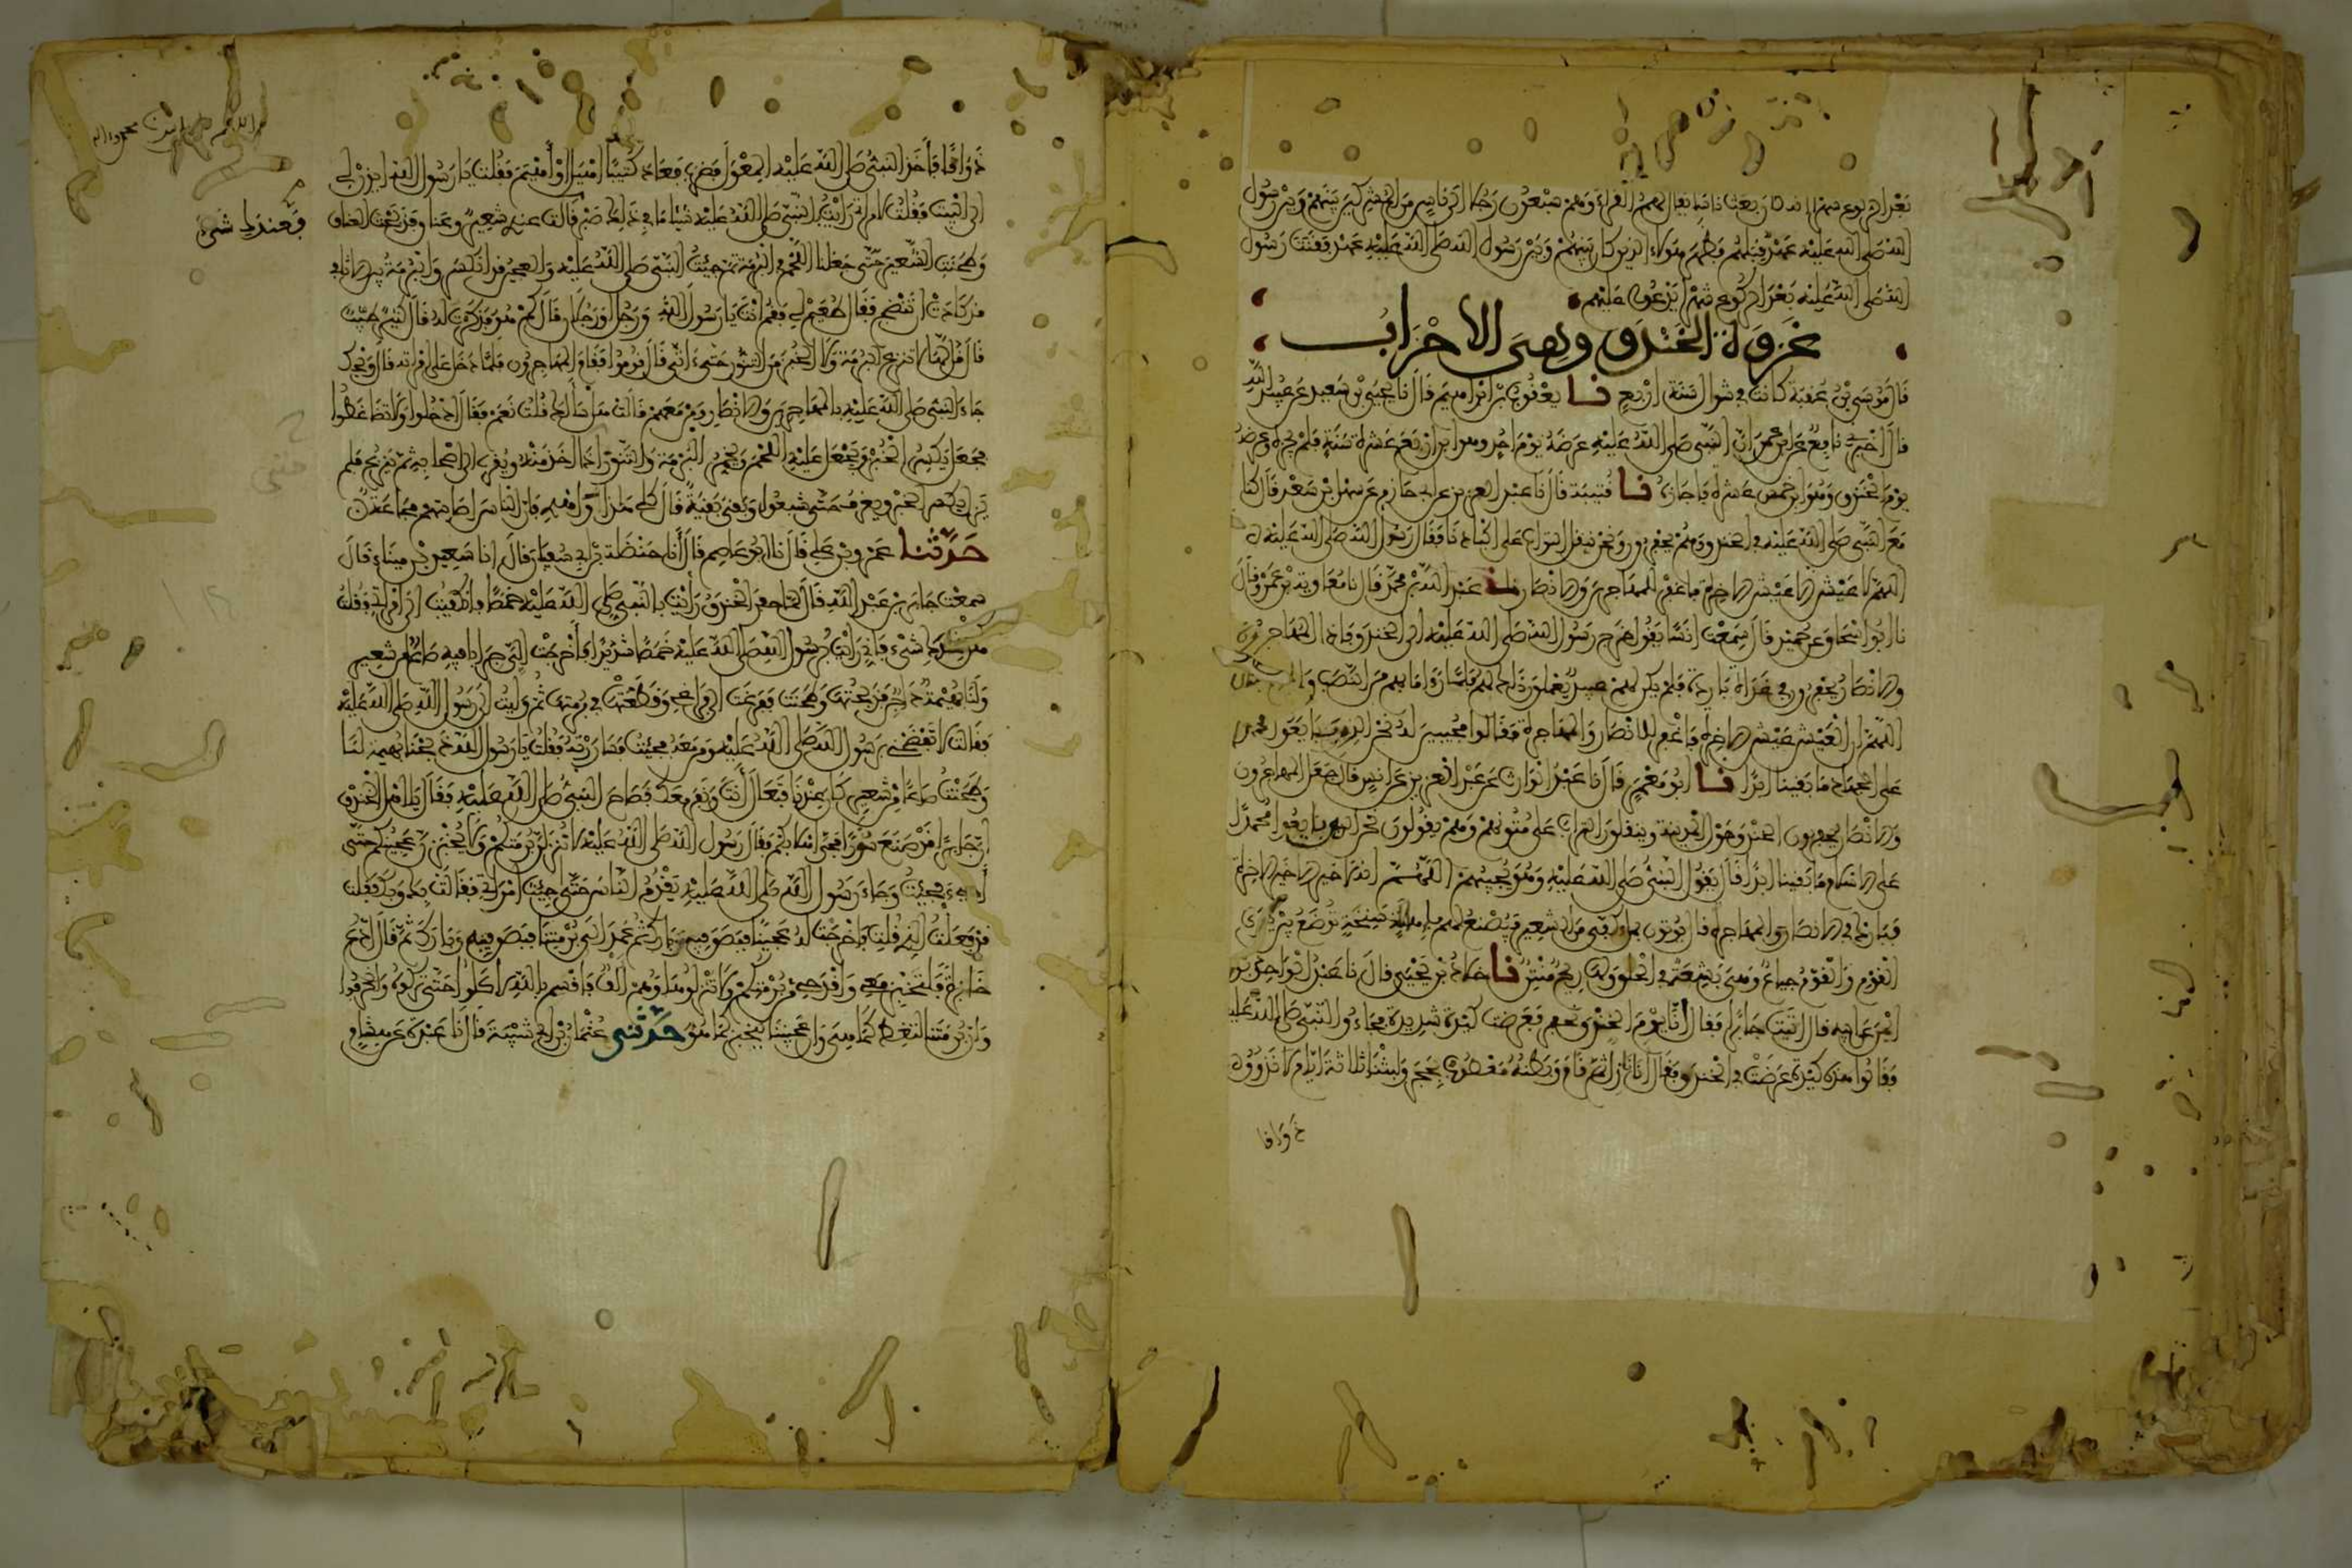 بعد الركوع شهرا انه كان بعث ناسا يقال لهم القراء وهم سبعون رجلا الى ناس من المشركين بينهم وبين رسول
الله صلى الله عليه عهد قبلهم فظهر هؤلاء الذين كان بينهم وبين رسول الله صلى الله عليه عهد فقنت رسول
الله صلى الله عليه بعد الركوع شهرا يدعو عليهم
غزوة الخندق وهي الاحزاب
قال موسى بن عقبة كانت في شوال سنة اربع نا يعقوب بن ابراهيم قال نا يحيى بن سعيد عن عبيد الله
قال اخبرني نافع عن ابن عمر ان النبي صلى الله عليه عرضه يوم احد وهو ابن اربع عشرة سنة فلم يجزه وعرضه
يوم الخندق وهو ابن خمس عشرة فاجازه نا قتيبة قال نا عبد العزيز عن ابي حازم عن سهل بن سعد قال كنا
مع النبي صلى الله عليه في الخندق وهم يحفرون ونحن ننقل التراب على اكتادنا فقال رسول الله صلى الله عليه
اللهم لا عيش الا عيش الاخرة فاغفر للمهاجرين والانصار نا عبد الله بن محمد قال نا معاوية بن عمرو قال
نا ابو اسحاق عن حميد قال سمعت انسا يقول خرج رسول الله صلى الله عليه الى الخندق فاذا المهاجرون
والانصار يحفرون في غداة باردة فلم يكن لهم عبيد يعملون ذلك لهم فلما راى ما بهم من النصب والجوع قال
اللهم ان العيش عيش الاخرة فاغفر للانصار والمهاجرة فقالوا مجيبين له نحن الذين بايعوا محمدا
على الجهاد ما بقينا ابدا نا ابو معمر قال نا عبد الوارث عن عبد العزيز عن انس قال جعل المهاجرون
والانصار يحفرون الخندق حول المدينة وينقلون التراب على متونهم وهم يقولون نحن الذين بايعوا محمدا
على الاسلام ما بقينا ابدا قال يقول النبي صلى الله عليه وهو يجيبهم اللهم انه لا خير الا خير الاخرة
فبارك في الانصار والمهاجرة قال يوتون بملء كفي من الشعير فيصنع لهم باهالة سنخة توضع بين يدي
القوم والقوم جياع وهي بشعة في الحلق ولها ريح منتن نا خلاد بن يحيى قال نا عبد الواحد بن
ايمن عن ابيه قال اتيت جابرا فقال انا يوم الخندق نحفر فعرضت كدية شديدة فجاءوا النبي صلى الله عليه
فقالوا هذه كدية عرضت في الخندق فقال انا نازل ثم قام وبطنه معصوب بحجر ولبثنا ثلاثة ايام لا نذوق
ذواقا
ذواقا فاخذ النبي صلى الله عليه المعول فضرب فعاد كثيبا اهيل او اهيم فقلت يا رسول الله ايذن لي
الى البيت فقلت لامراتي رايت بالنبي صلى الله عليه شيئا ما في ذلك صبر قالت عندي شعير وعناق فذبحت العناق
فعندك شيء
وطحنت الشعير حتى جعلنا اللحم في البرمة ثم جئت النبي صلى الله عليه والعجين قد انكسر والبرمة بين الاثافي
قد كادت ان تنضج فقال طعيم لي فقم انت يا رسول الله ورجل او رجلان قال كم هو فذكرت له قال كثير طيب
قال قل لها لا تنزع البرمة ولا الخبز من التنور حتى اتي قال قوموا فقام المهاجرون فلما دخل على امراته قال ويحك
جاء النبي صلى الله عليه بالمهاجرين والانصار ومن معهم قالت هل سالك قلت نعم فقال ادخلوا ولا تضاغطوا
فجعل يكسر الخبز ويجعل عليه اللحم ويخمر البرمة والتنور اذا اخذ منه ويقرب الى اصحابه ثم ينزع فلم
يزل يكسر الخبز ويغرف حتى شبعوا وبقي بقية قال كلي هذا واهدي فان الناس اصابتهم مجاعة
حدثنا عمرو بن علي قال نا ابو عاصم قال انا حنظلة بن ابي سفيان قال انا سعيد بن ميناء قال
سمعت جابر بن عبد الله قال لما حفر الخندق رايت بالنبي صلى الله عليه خمصا فانكفيت الى امراتي فقلت
هل عندك شيء فاني رايت برسول الله صلى الله عليه خمصا شديدا فاخرجت الي جرابا فيه صاع من شعير
ولنا بهيمة داجن فذبحتها وطحنت ففرغت الى فراغي وقطعتها في برمتها ثم وليت الى رسول الله صلى الله عليه
فقالت لا تفضحني برسول الله صلى الله عليه ومن معه فجئت فساررته فقلت يا رسول الله ذبحنا بهيمة لنا
وطحنت صاعا من شعير كان عندنا فتعال انت ونفر معك فصاح النبي صلى الله عليه فقال يا اهل الخندق
ان جابرا قد صنع سورا فحي هلا بكم فقال رسول الله صلى الله عليه لا تنزلن برمتكم ولا يخبزن عجينكم حتى
اجيء فجئت وجاء رسول الله صلى الله عليه يقدم الناس حتى جئت امراتي فقالت بك وبك فقلت
قد فعلت الذي قلت فاخرجت له عجينا فبصق فيه وبارك ثم عمد الى برمتنا فبصق فيه وبارك ثم قال ادع
خابزة فلتخبز معي واقدحي من برمتكم ولا تنزلوها وهم الف فاقسم بالله لاكلوا حتى تركوه وانحرفوا
وان برمتنا لتغط كما هي وان عجيننا ليخبز كما هو حدثني عثمان بن ابي شيبة قال نا عبدة عن هشام